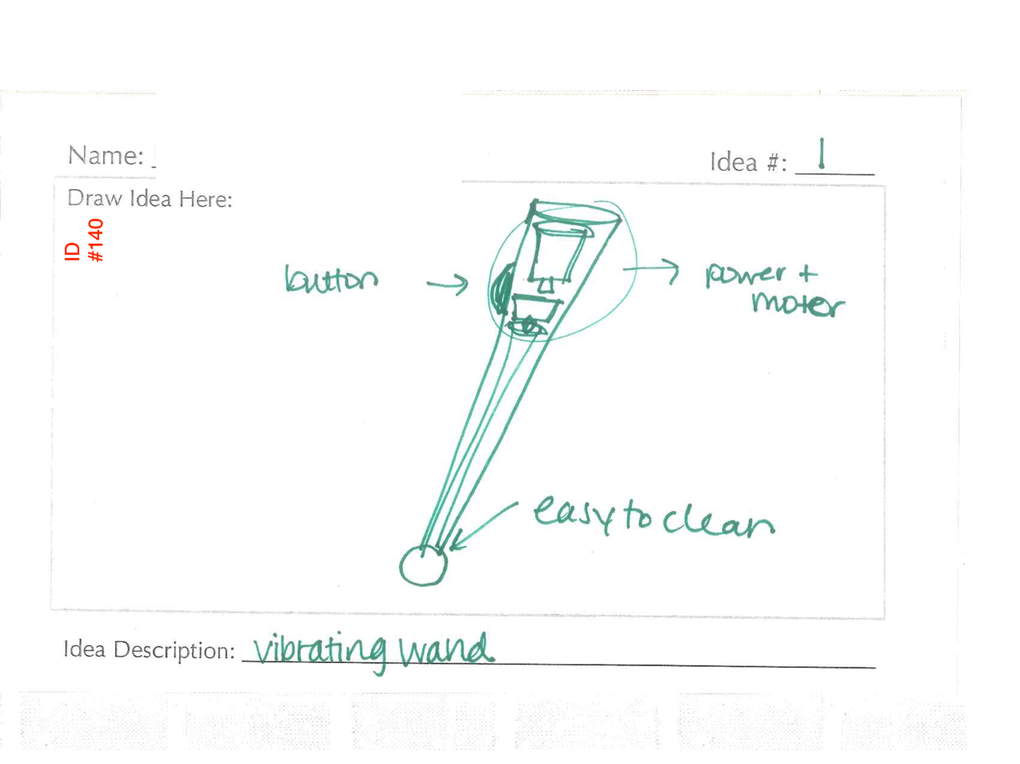 Name:
Idea #: 1
Draw Idea Here:
ID
#140
button
power +
moter
easy to clean
Idea Description: vibrating wand